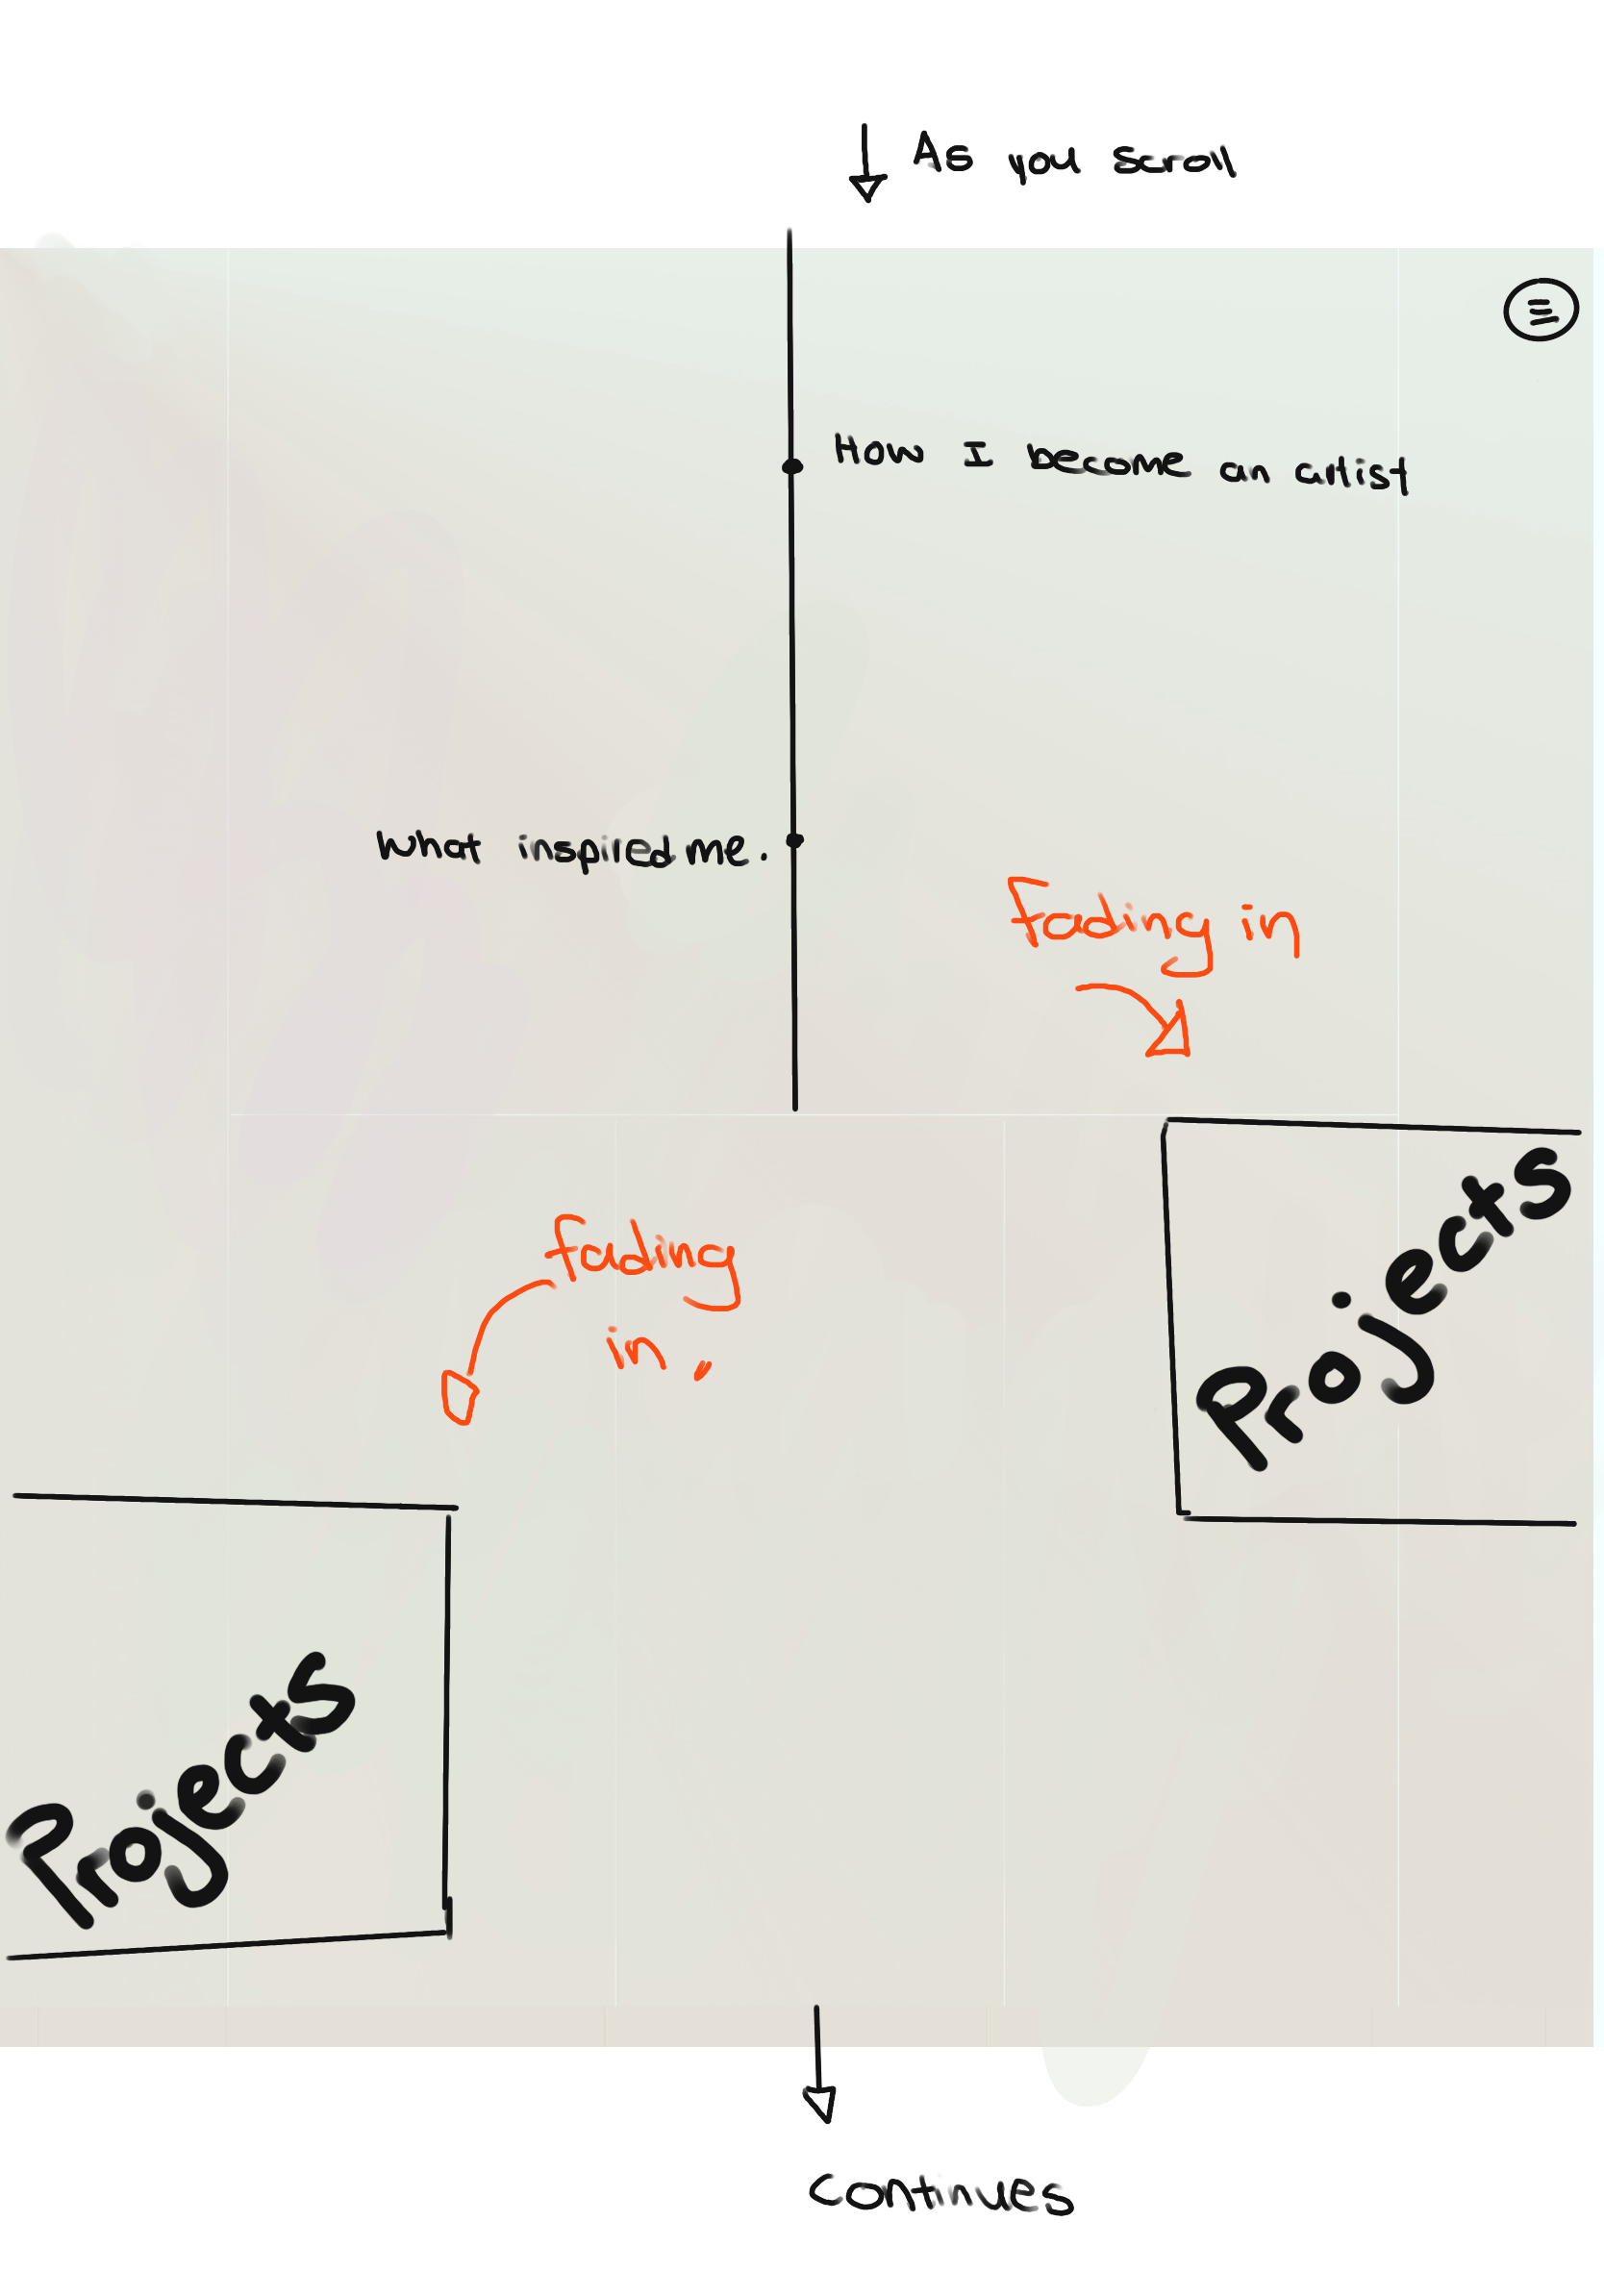 As you scroll
How I become an artist
What inspired me.
Fading in
Projects
fading
in.
Projects
continues